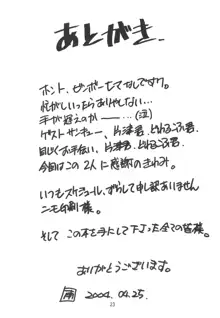 あとがき
ホント、ビンボーヒマなしですワ。
忙がしいったらありゃしない…
手が遅えのか───、(泣)
ゲストサンキュー、片津君、
目じくお手伝い、片津君、
今回はこの2人に感謝のきわみ。
いつもスケジュール、ずらして申し訳ありません
ニモ印刷様。
そして この本を手にして下さった全ての皆様。
ありがとうございます。
2004.04.25.
23